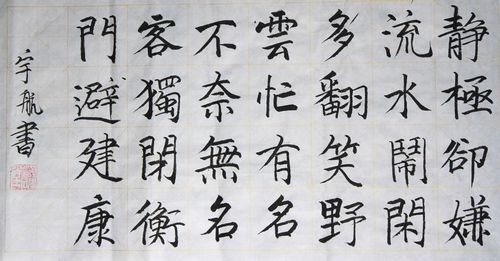 静極卻嫌
流水鬧閑
多翻笑野
雲忙有名
不奈無名
客獨閉衡
門避建康
宇航書